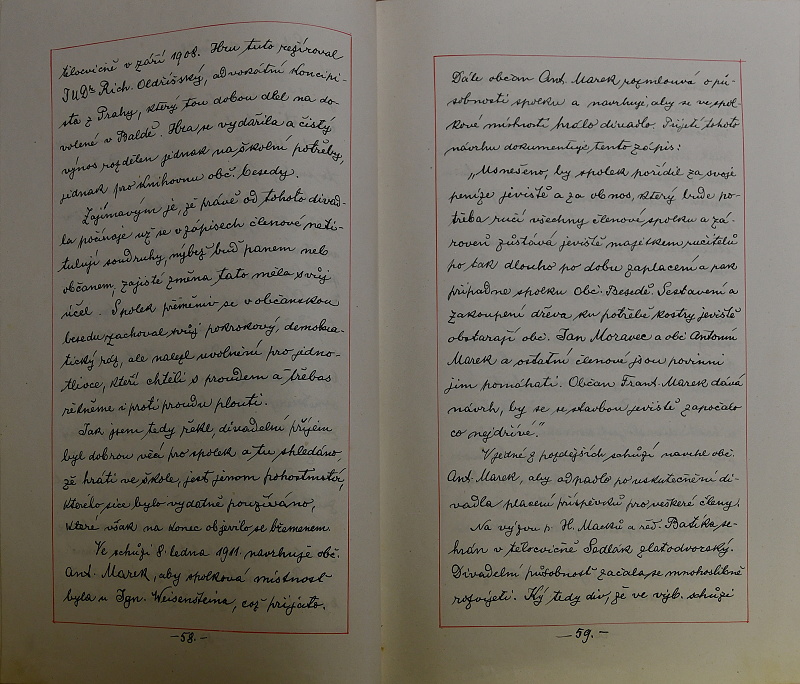 tělocvičně v září 1908. Hru tuto režíroval
JUDr Rich. Oldřišský, advokátní koncipi-
sta z Prahy, který tou dobou dlel na do-
volené v Baldě. Hra se vydařila a čistý
výnos rozdělen jednak na školní potřeby,
jednak pro knihovnu obč. besedy.
Zajímavým je, že právě od tohoto divad-
la počínaje už se v zápisech členové neti-
tulují soudruhy, nýbrž buď panem neb
občanem, zajisté změna tato měla svůj
účel. Spolek přeměniv se v občanskou
besedu, zachoval svůj pokrokový, demokra-
tický ráz, ale nalezl uvolnění pro jedno-
tlivce, kteří chtěli s proudem a třebas
řekněme i proti proudu plouti.
Jak jsem tedy řekl, divadelní příjem
byl dobrou věcí pro spolek a tu shledáno,
že hráti ve škole, jest jenom pohostinství,
kterého sice bylo vydatně používáno,
které však na konec objevilo se břemenem.
Ve schůzi 8. ledna 1911. navrhuje obč.
Ant. Marek, aby spolková místnost
byla u Ign. Weisensteina, což přijato.
—58.—
Dále občan Ant. Marek rozmlouvá o pů-
sobnosti spolku a navrhuje, aby se ve spol-
kové místnosti hrálo divadlo. Přijetí tohoto
návrhu dokumentuje tento zápis:
„Usnešeno, by spolek pořídil za svoje
peníze jeviště a za obnos, který bude po-
třeba ručí všechny členové spolku a zá-
roveň zůstává jeviště majetkem ručitelů
po tak dlouho po dobu zaplacení a pak
připadne spolku Obč. Besedě. Sestavení a
zakoupení dřeva ku potřebě kostry jeviště
obstarají obč. Jan Moravec a obč Antonín
Marek a ostatní členové jsou povinni
jim pomáhati. Občan Frant. Marek dává
návrh, by se se stavbou jeviště započalo
co nejdříve."
V jedné z pozdějších schůzí navrhl obč.
Ant. Marek, aby odpadlo po uskutečnění di-
vadla placení příspěvků pro veškeré členy.
Na výzvu p. H. Macků a řed. Batíka se-
hrán v tělocvičně Sedlák zlatodvorský.
Divadelní působnost začala se mnohoslibně
rozvíjeti. Ký tedy div, že ve výb. schůzi
—59.—